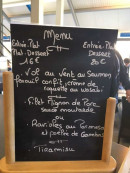 Menu
Entrée-Plat
Plat-Dessert
16€
Entrée-Plat
Dessert
20€
. Vol au Vent au Saumon
fenouil confit, crème de
roquette au wasabi
. Filet Mignon de Porc
sauce moutarde
ou
Ravioles au Parmesan
et poêlée de Gambas
. Tiramisu